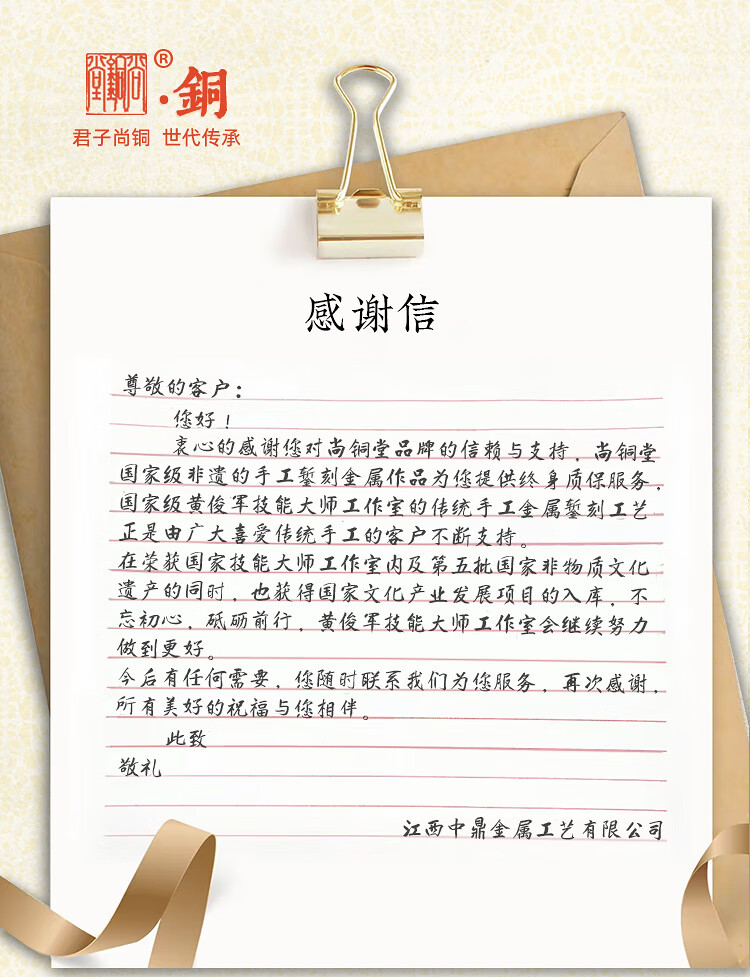 尚銅堂®·銅
君子尚铜 世代传承
感谢信
尊敬的客户：
您好！
衷心的感谢您对尚铜堂品牌的信赖与支持，尚铜堂
国家级非遗的手工錾刻金属作品为您提供终身质保服务，
国家级黄俊军技能大师工作室的传统手工金属錾刻工艺
正是由广大喜爱传统手工的客户不断支持。
在荣获国家技能大师工作室内及第五批国家非物质文化
遗产的同时，也获得国家文化产业发展项目的入库，不
忘初心，砥砺前行，黄俊军技能大师工作室会继续努力
做到更好。
今后有任何需要，您随时联系我们为您服务，再次感谢，
所有美好的祝福与您相伴。
此致
敬礼
江西中鼎金属工艺有限公司